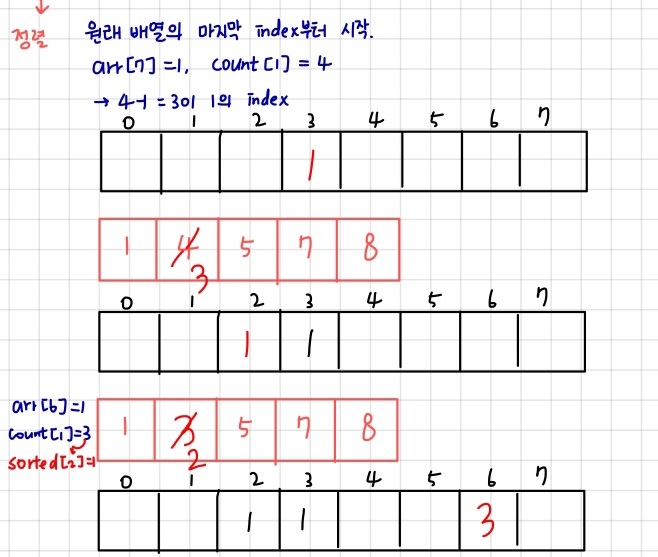 정렬 원래 배열의 마지막 index부터 시작.
arr[7]=1, count[1]=4
→ 4-1=3이 1의 index
0 1 2 3 4 5 6 7
1
1 4 5 7 8
3
0 1 2 3 4 5 6 7
1 1
arr[6]=1
count[1]=3
sorted[2]=1
1 3 5 7 8
2
0 1 2 3 4 5 6 7
1 1 3